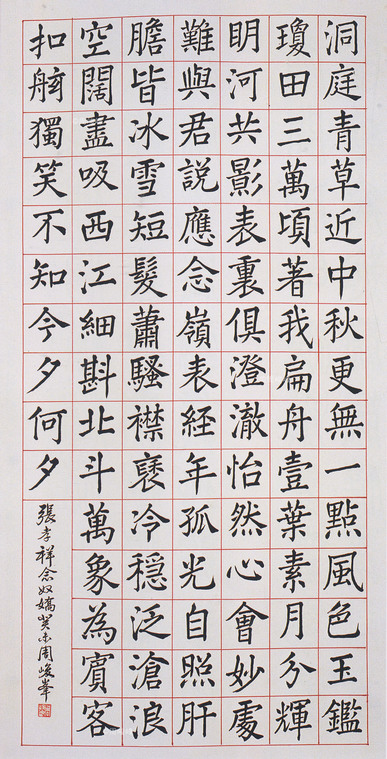 洞庭青草近中秋更無一點風色玉鑑
瓊田三萬頃著我扁舟壹葉素月分輝
眀河共影表裏俱澄澈怡然心會妙處
難與君説應念嶺表経年孤光自照肝
膽皆冰雪短髮蕭騷襟褎冷穩泛滄浪
空闊盡吸西江細斟北斗萬象為賓客
扣舷獨笑不知今夕何夕
張孝祥念奴嬌癸未周峻峯